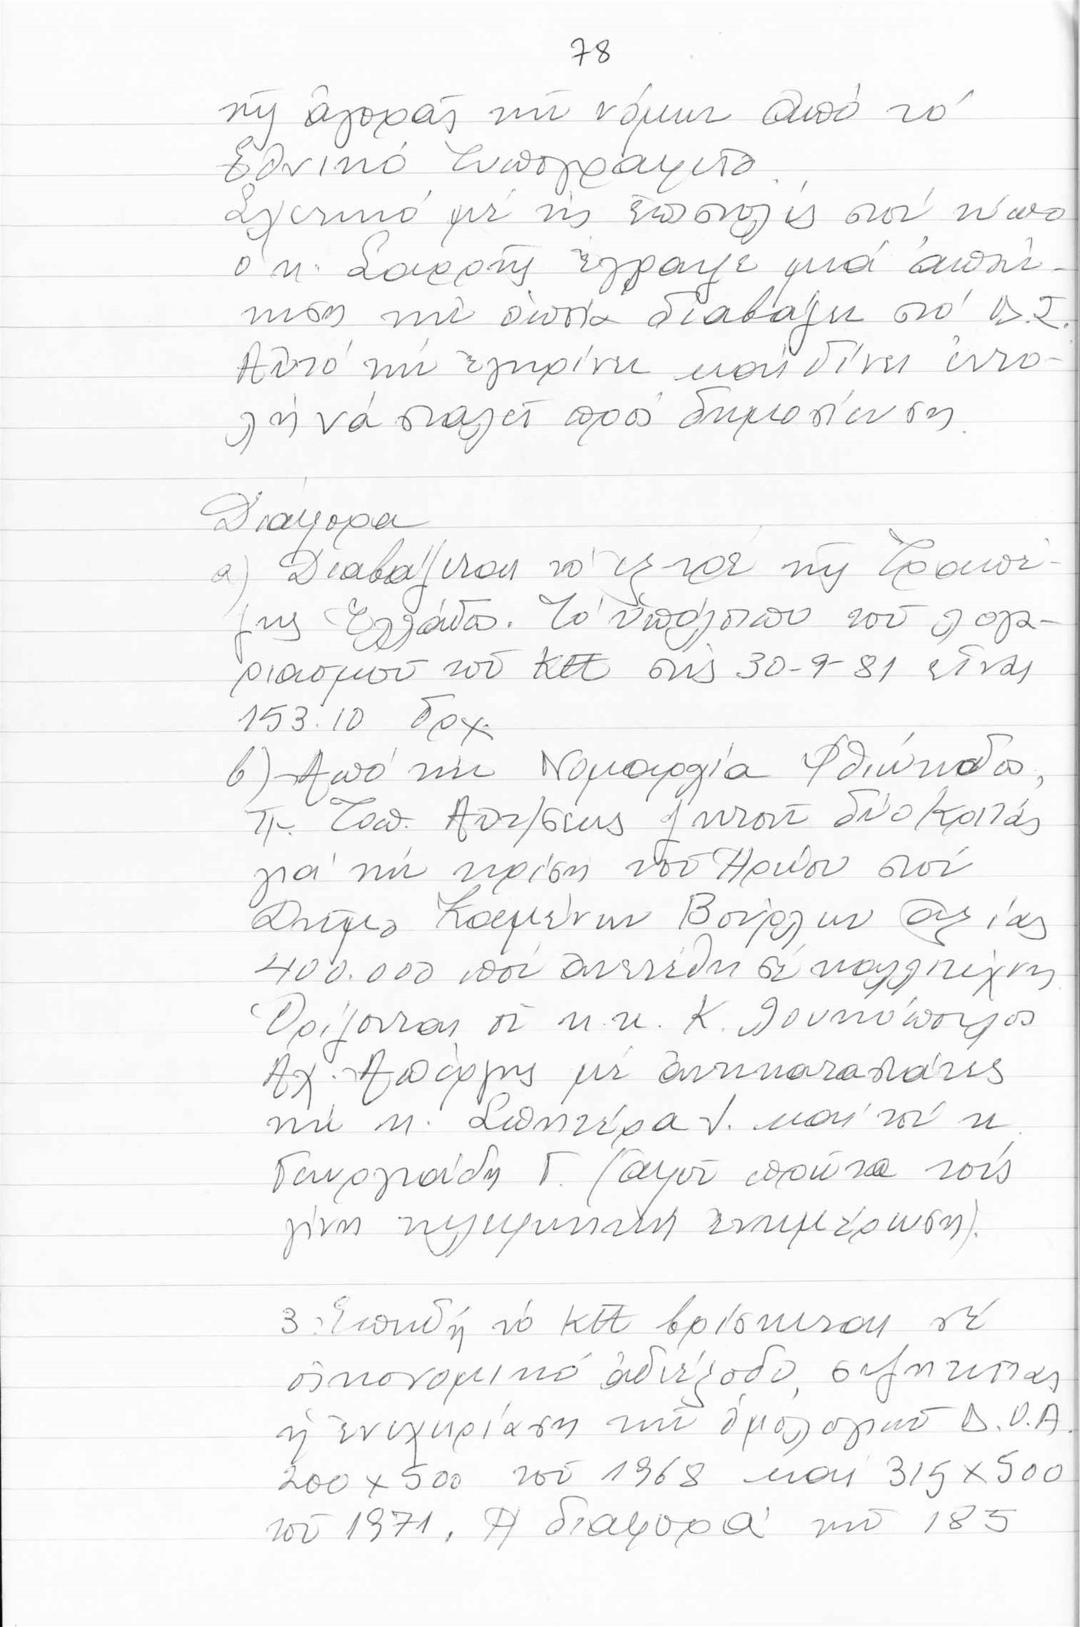 78
τῆς ἀγορᾶς τῶν νόμων ἀπό τό
Ἐθνικό Τυπογραφεῖο.
Σχετικά μέ τίς ἐπιστολές στόν τύπο
ὁ κ. Σαρρῆς ἔγραψε μιά ἀπάν-
τηση τήν ὁποία διαβάζει στό Δ.Σ.
Αὐτό τήν ἐγκρίνει καί δίνει ἐντο-
λή νά σταλεῖ πρός δημοσίευση.
Διάφορα
α) Διαβάζεται τό ἐξτρέ τῆς Τραπέ-
ζης Ἑλλάδος. Τό ὑπόλοιπο τοῦ λογα-
ριασμοῦ τοῦ ΚΤΠ στίς 30-9-81 εἶναι
153.10 δρχ.
β) Ἀπό τήν Νομαρχία Φθιώτιδος,
Τμ. Τοπ. Αὐτ/σεως ζητοῦν δύο κριτάς
γιά τήν κρίση τοῦ Ἡρώου στόν
Δῆμο Καμένων Βούρλων ἀξίας
400.000 πού ἀνετέθη σέ καλλιτέχνη
Ὁρίζονται οἱ κ.κ. Κ. Λουκόπουλος
Αχ. Ἀπέργης μέ ἀντικαταστάτες
τήν κ. Σπητέρα Ι. καί τόν κ.
Γεωργιάδη Γ. (ἀφοῦ πρῶτα τούς
γίνη τηλεφωνική ἐνημέρωση).
3. Ἐπειδή τό ΚΤΠ βρίσκεται σέ
οἰκονομικό ἀδιέξοδο, συζητεῖται
ἡ ἐνεχυρίαση τῶν ὁμολογιῶν Δ.Ο.Α.
200 x 500 τοῦ 1968 καί 315 x 500
τοῦ 1971. Ἡ διαφορά τῶν 185